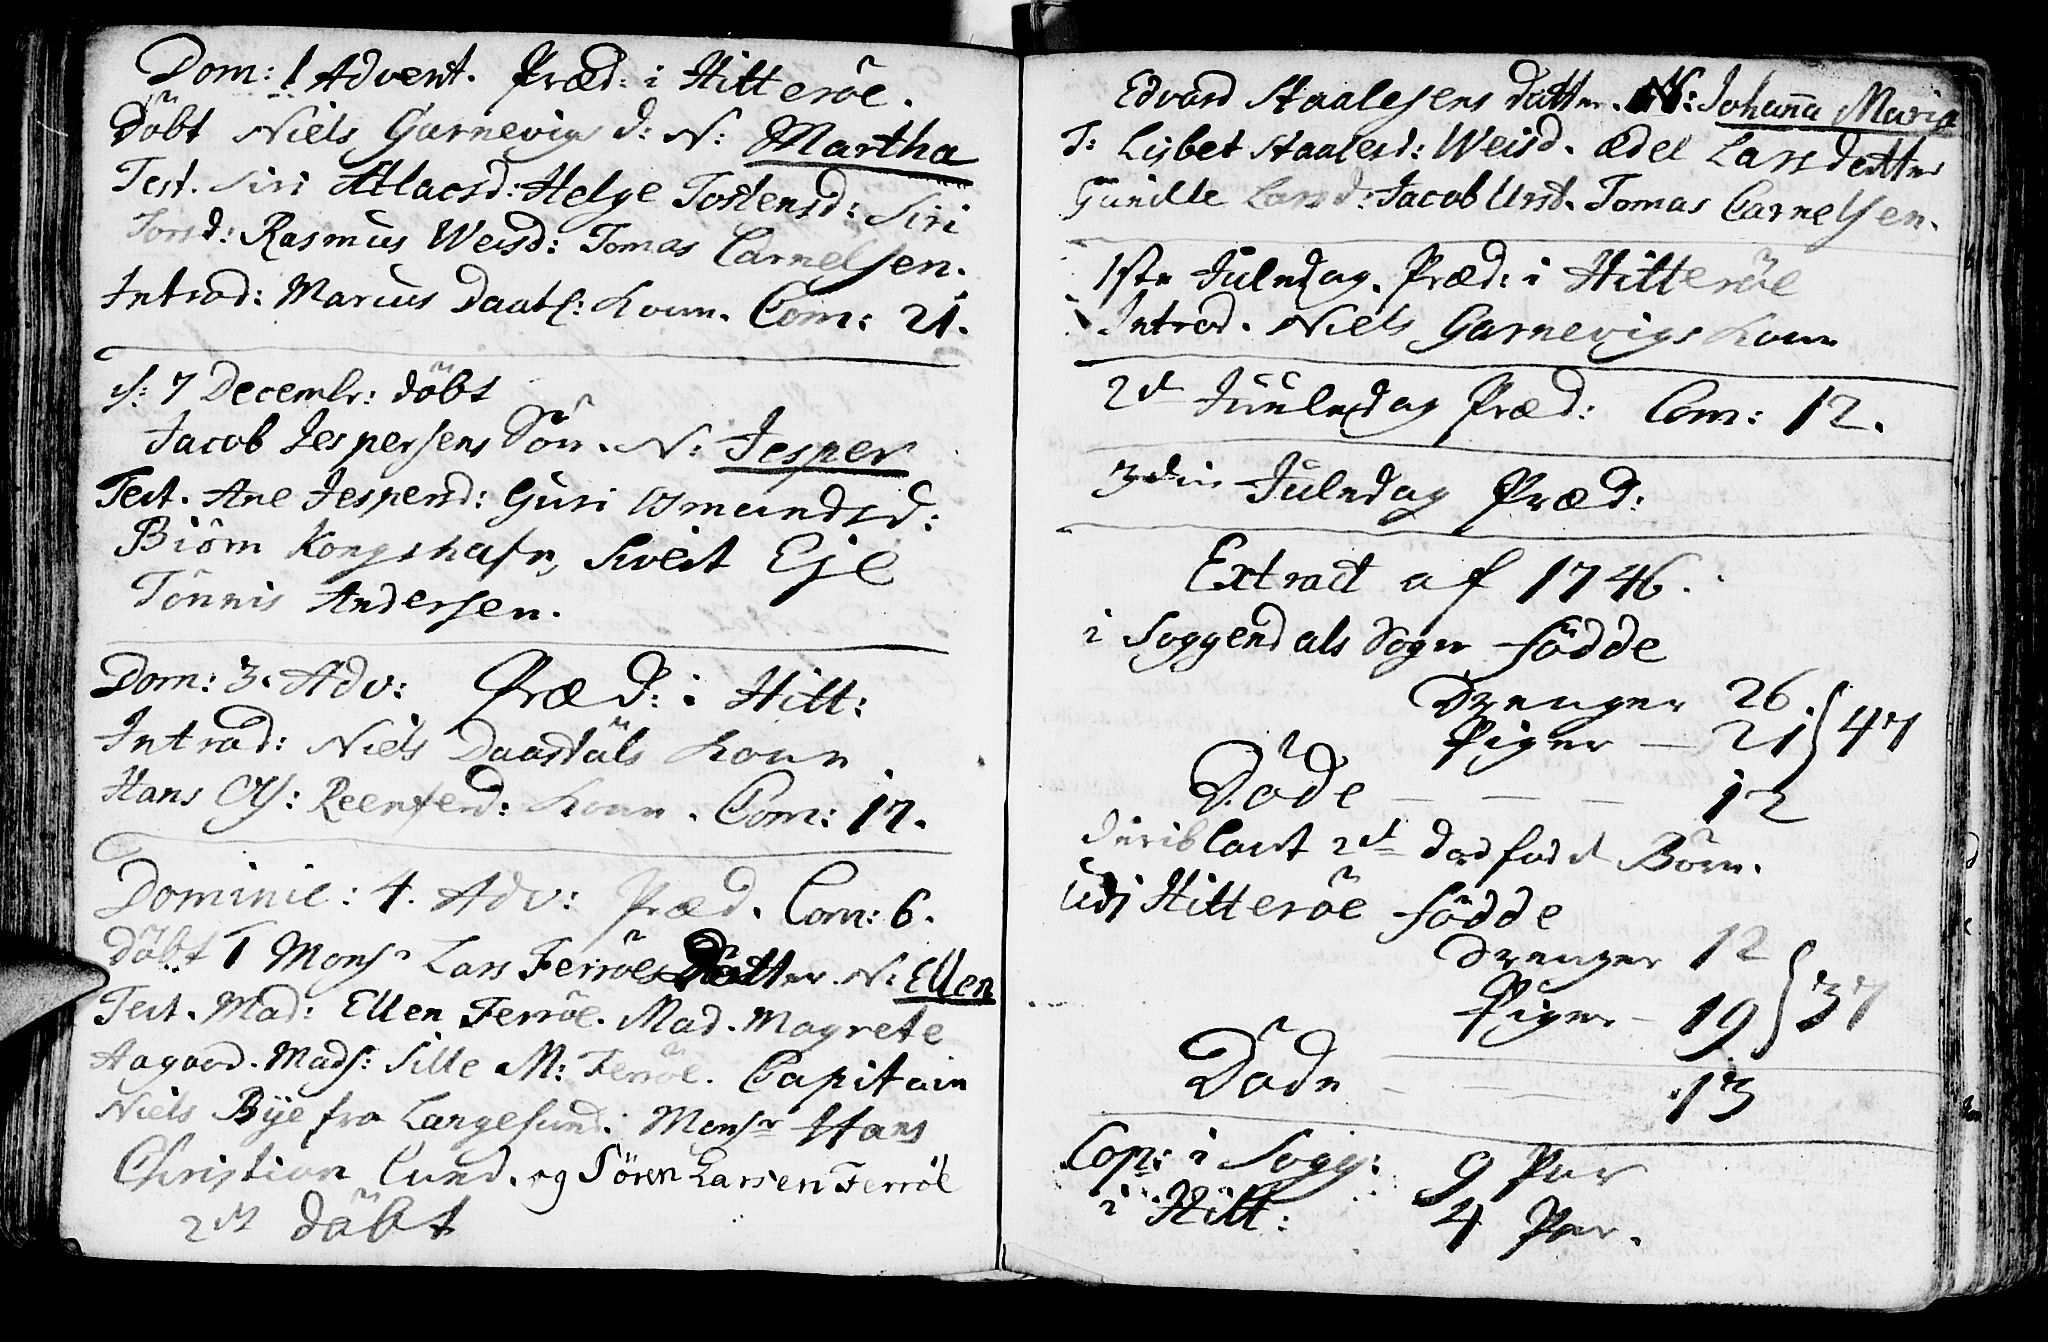 Dom: 1 Advent. Præd: i Hitteröe.
Döbt Niels Garnevigs d: N: Martha
Test. Siri Atlacsd: Helge Tostensd: Siri
Torsd: Rasmus Weisd: Tomas Carnelsen.
Introd: Marcus Daatl: Kone. Com: 21.
d: 7 Decembr: döbt
Jacob Jespersens Sön. N: Jesper
Test. Ane Jespersd: Guri Osmundsd:
Biörn Kongshafn, Siveit Eje
Tönnis Andersen.
Dom: 3. Adv: Præd: i Hitt:
Introd: Niels Daastöls Kone
Hans Reenferd: Kone. Com: 17.
Dominic: 4. Adv: Præd. Com: 6.
Döbt 1 Monsr Lars Ferröes Datter. N: Ellen
Test. Mad: Ellen Ferröe. Mad. Magrete
Aagaard. Mads: Sille M: Ferröe. Capitain
Niels Bÿe fra Langesund. Monsr Hans
Christian Lund. og Sören Larsen Ferröe
2det döbt
Edvard Staalesens datter. N: Johanna Maria
T: Lisbet Staalesd: Weisd. Ædel Larsdatter
Gunille Larsd: Jacob Urst. Tomas Carnelsen.
1ste Juledag. Præd: i Hitteröe
Introd. Niels Garnevigs Kone
2d Juuledag Præd: Com: 12.
3die Juledag Præd:
Extract af 1746.
i Soggendals Sogn födde
Drenger 26.
Piger — 21 } 47
Döde — — — 12
Deriblant 2de dödfödt Börn.
Udj Hitteröe födde
Drenger 12
Piger — 19 } 37
Döde — — — 13
Cop: i Sogg: 9 Par
i Hitt: 4 Par.